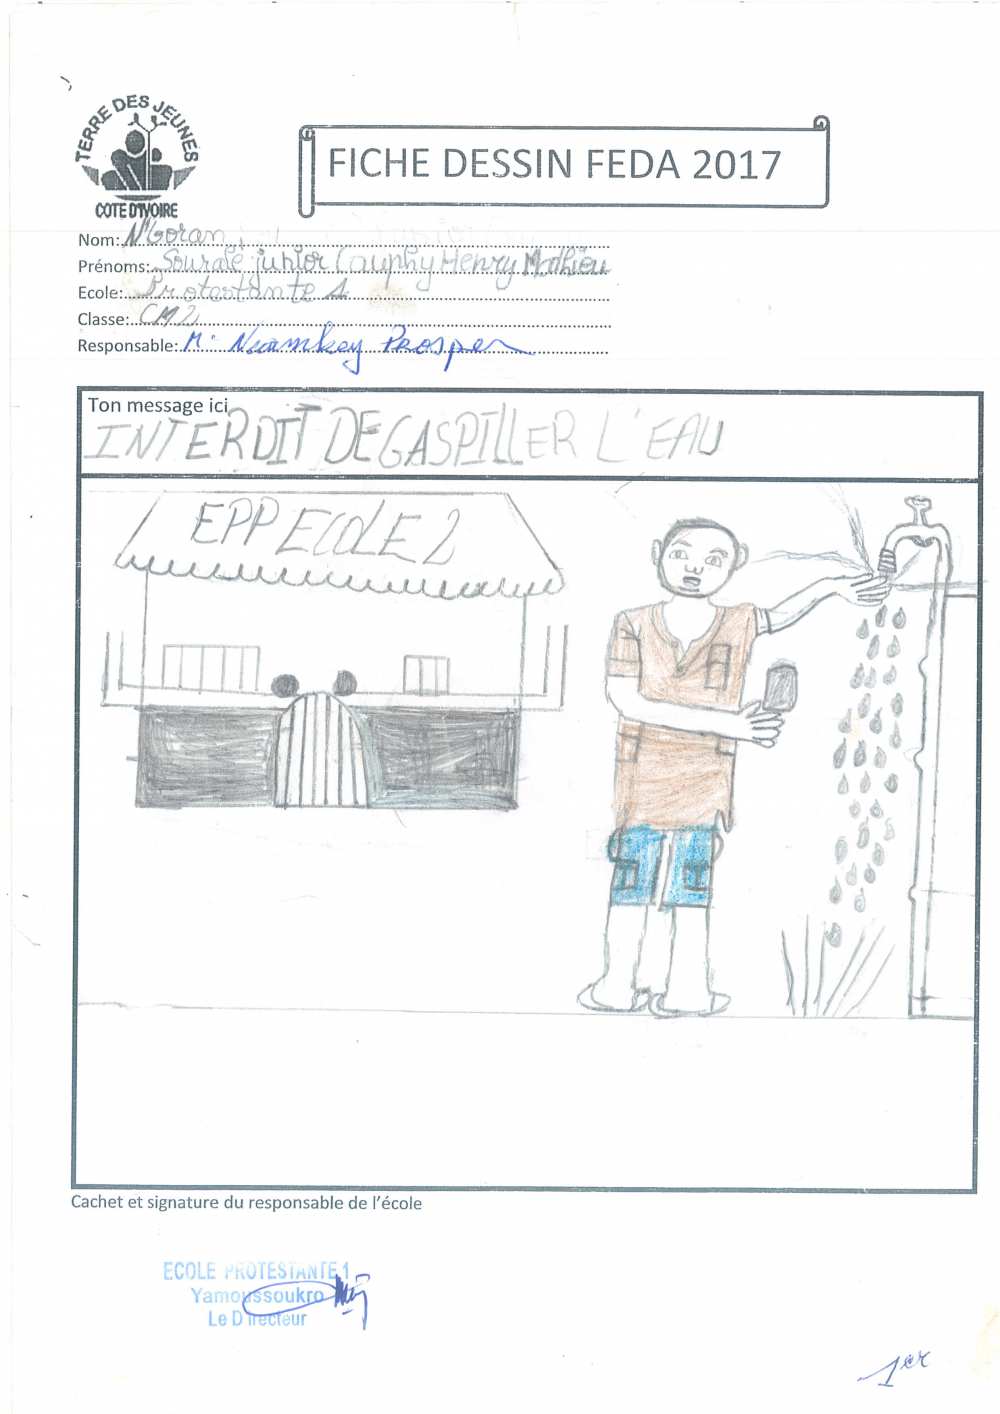 TERRE DES JEUNES
COTE D'IVOIRE
FICHE DESSIN FEDA 2017
Nom: N'Goran
Prénoms: junior Henry Mathieu
Ecole: Protestante 1
Classe: CM2
Responsable: Mr Prosper
Ton message ici
INTERDIT DE GASPILLER L'EAU
EPP ECOLE 2
Cachet et signature du responsable de l'école
ECOLE PROTESTANTE 1
Yamoussoukro
Le Directeur
1er